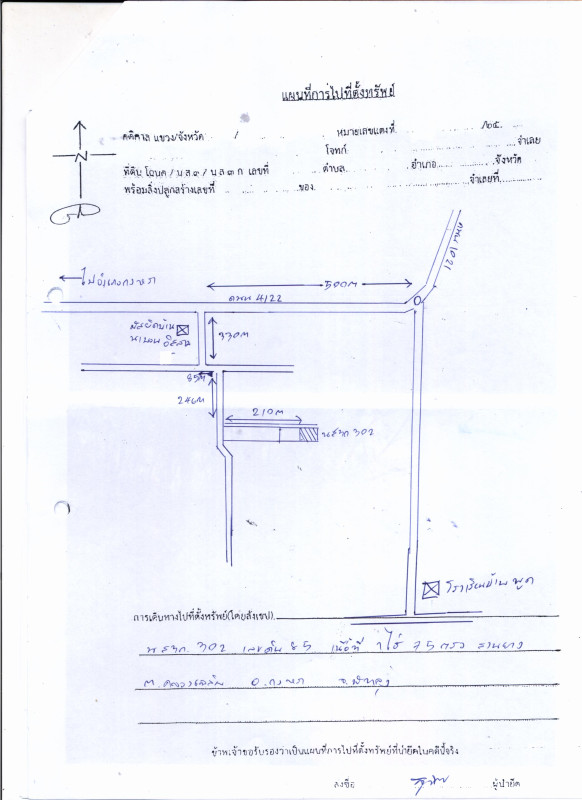 แผนที่การไปที่ตั้งทรัพย์
คดีศาล แขวง/จังหวัด / หมายเลขแดงที่ /๒๕
โจทก์ จำเลย
ที่ดิน โฉนด / น.ส.๓ / น.ส.๓ ก. เลขที่ ตำบล อำเภอ จังหวัด
พร้อมสิ่งปลูกสร้างเลขที่ ของ จำเลยที่
N
ถนน 1021
ไปอำเภอกงหรา
500M
ถนน 4122
330M
85M
246M
210M
น.ส.3ก. 302
โรงเรียนบ้านพูด
การเดินทางไปที่ตั้งทรัพย์(โดยสังเขป)
น.ส.3ก. 302 เลขดิน 85 เนื้อที่ 1 ไร่ 75 ตรว สวนยาง
ต.คลองเฉลิม อ.กงหรา จ.พัทลุง
ข้าพเจ้าขอรับรองว่าเป็นแผนที่การไปที่ตั้งทรัพย์ที่นำยึดในคดีนี้จริง
ลงชื่อ ผู้นำยึด